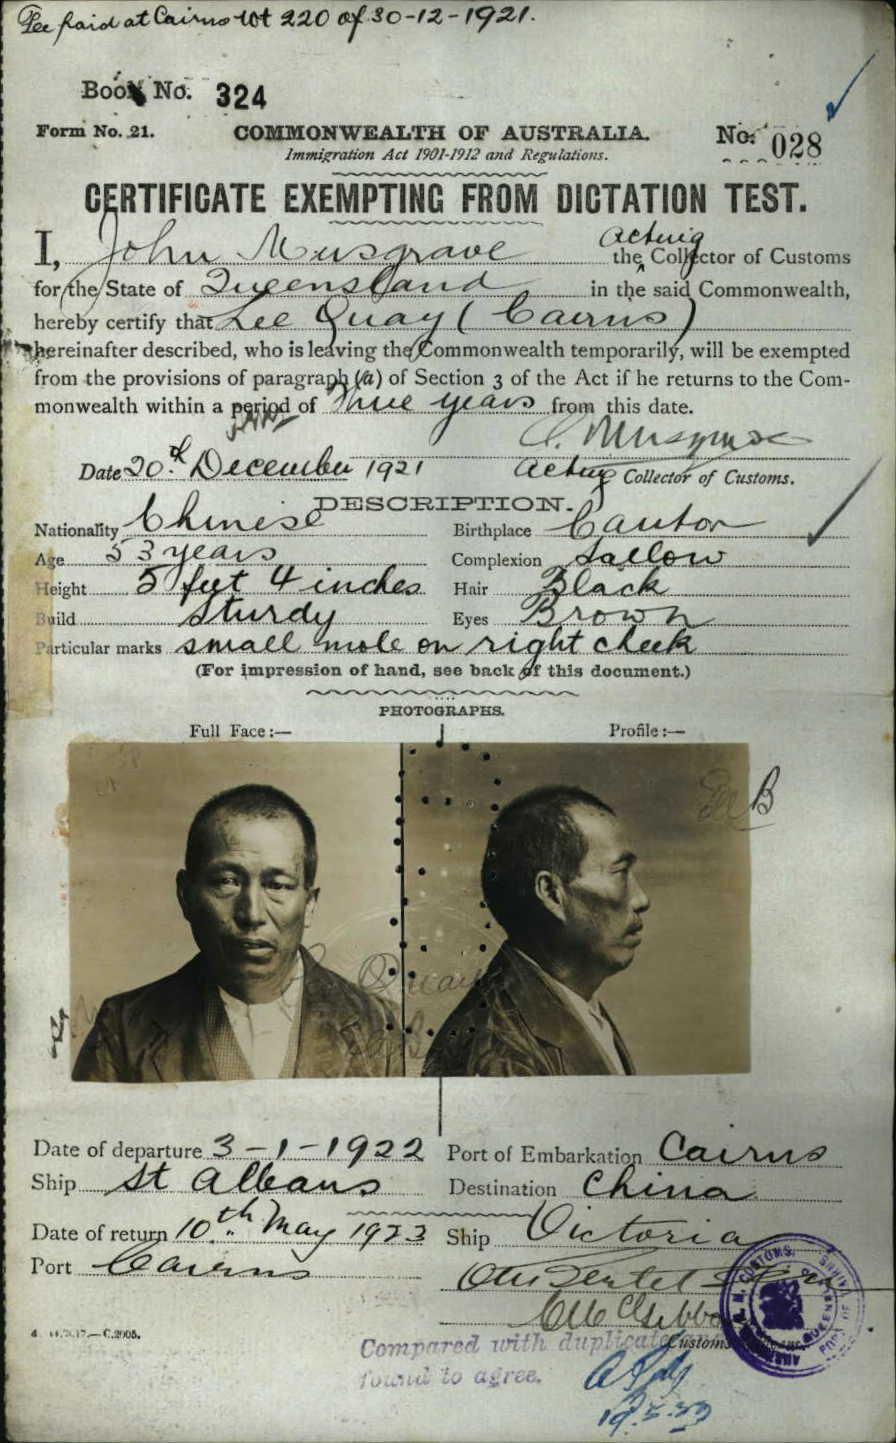 Fee paid at Cairns 220 of 30-12-1921.
Book No. 324
Form No. 21. COMMONWEALTH OF AUSTRALIA. No. 028
Immigration Act 1901-1912 and Regulations.
CERTIFICATE EXEMPTING FROM DICTATION TEST.
I, John Musgrave the Acting Collector of Customs
for the State of Queensland in the said Commonwealth,
hereby certify that Lee Quay (Cairns)
hereinafter described, who is leaving the Commonwealth temporarily, will be exempted
from the provisions of paragraph (a) of Section 3 of the Act if he returns to the Com-
monwealth within a period of Three years from this date.
Musgrave
Date 20th December 1921 Acting Collector of Customs.
DESCRIPTION.
Nationality Chinese Birthplace Canton
Age 53 years Complexion Sallow
Height 5 feet 4 inches Hair Black
Build Sturdy Eyes Brown
Particular marks small mole on right cheek
(For impression of hand, see back of this document.)
PHOTOGRAPHS.
Full Face:— Profile:—
B
Quay
Date of departure 3-1-1922 Port of Embarkation Cairns
Ship St Albans Destination China
Date of return 10th May 1923 Ship Victoria
Port Cairns
Customs
CUSTOMS. QUEENSLAND PORT OF
Compared with duplicate
found to agree.